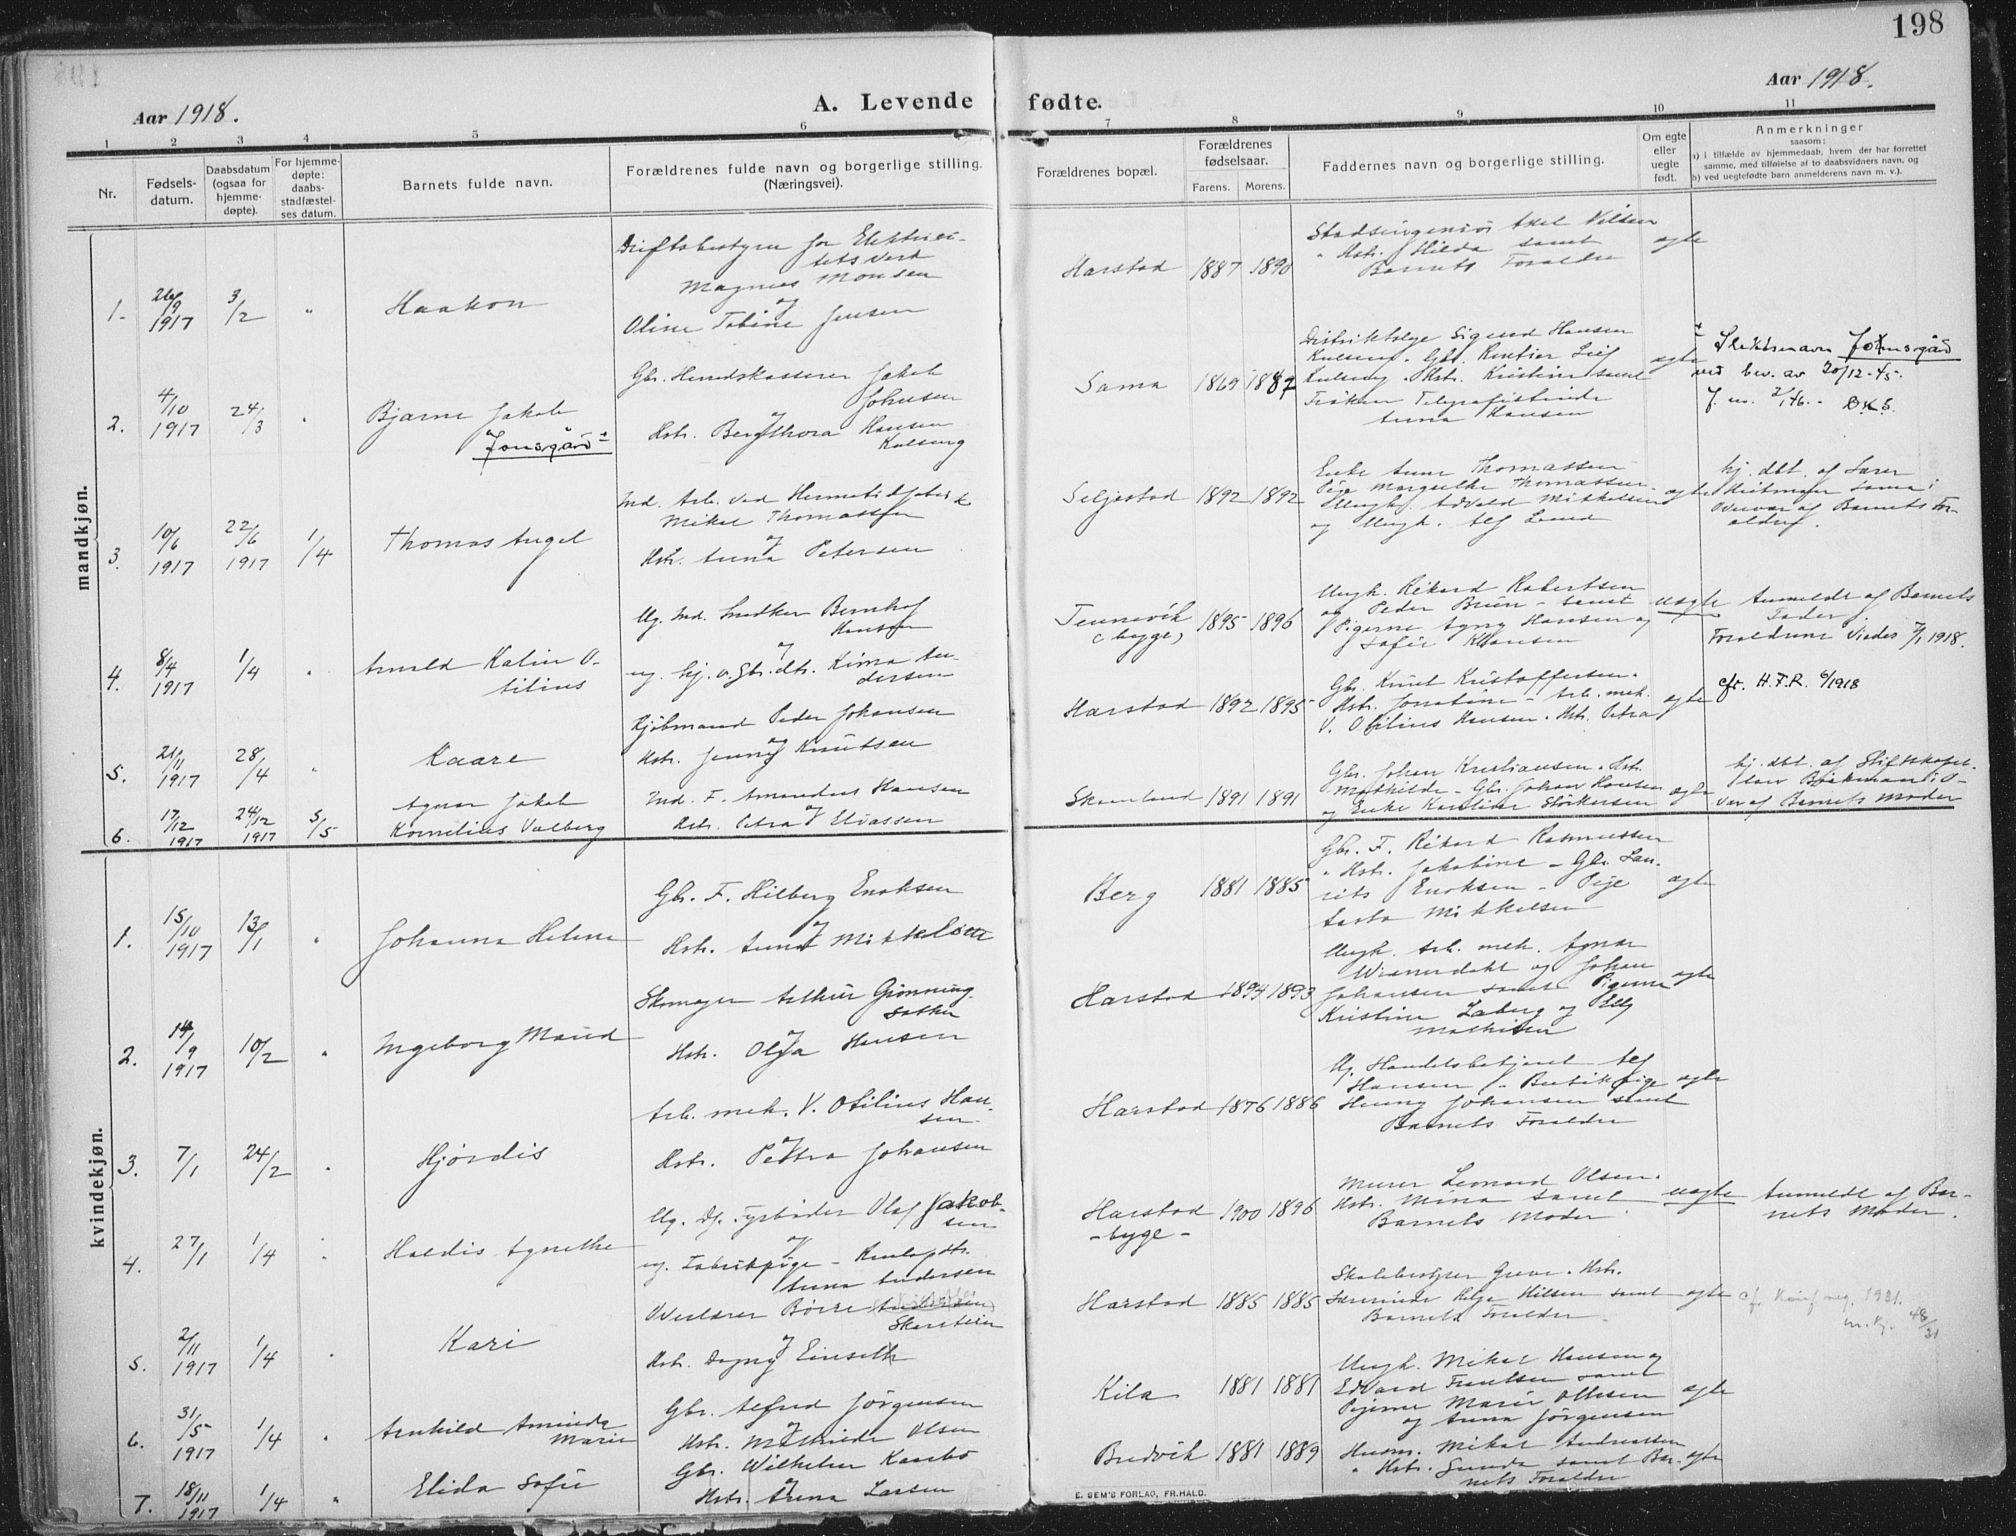 198
Aar 1918.
A. Levende fødte.
Aar 1918.
1 2 3 4 5 6 7 8 9 10 11
Nr.
Fødsels-
datum.
Daabsdatum
(ogsaa for
hjemme-
døpte).
For hjemme-
døpte:
daabs-
stadfæstel-
ses datum.
Barnets fulde navn.
Forældrenes fulde navn og borgerlige stilling.
(Næringsvei).
Forældrenes bopæl.
Forældrenes
fødselsaar.
Farens. Morens.
Faddernes navn og borgerlige stilling.
Om egte
eller
uegte
født.
Anmerkninger
saasom:
a) i tilfælde av hjemmedaab, hvem der har forrettet
samme, med tilføielse af to daabsvidners navn, og
b) ved uegtefødte barn anmelderens navn m. v.).
mandkjøn.
1. 26/9 1917 3/2 " Haakon
Driftsbestyrer for Elektrici-
tetsverk
Magnus Monsen
og
Oline Tobine Jensen
Harstad 1887 1890
Stadsingeniør Axel Nilsen
" Hstr. Hilda samt
Barnets Foraldre
egte
2. 4/10 1917 24/3 " Bjarne Jakob
Jonsgård +
Gbr. Herredskasserer Jakob
Johnsen
og
Hstr. Bergthora Hansen
Kulseng
Sama 1869 1887
Distriktslæge Sigurd Hansen
Kulseng. Gbr. Leif
Kulseng. Hstr. Kristine samt
Frøken Telegrafistinde
Anna Hansen
egte
+ Slektsnavn Jonsgård
ved bev. av 20/12-45.
J. nr. 2/46. - B.K.S.
3. 10/6 1917 22/6 1917 1/4 Thomas Angel
Ind. Arb. ved Hermetikfabrik
Mikal Thomassen
og
Hstr. Anna Petersen
Seljestad 1892 1892
Enke Anne Thomassen
Pige Margrethe Thomassen.
Ungk. Edvald Mikkelsen
og Ungk. Alf Lund
egte
hj. dbt. af Lærer
Sama i
Overvær af Barnets For-
aldre.
4. 8/4 1917 1/4 " Arnold Katin O-
tilius
Ug. Ind. Snedker Bernhof
Hansen
og
ug. hj. v. Gbr. dtr. Rima An-
dersen
Tennevik
(bygs) 1895 1896
Ungk. Rikard Robertsen
og Peder Bruun - samt
Pigerne Agny Hansen og
Sofie Hansen
uegte
Anmeldt af Barnets
Fader.
Foraldrene Viedes 7/1 1918.
5. 21/11 1917 28/4 " Kaare
Kjøbmand Peder Johansen
og
Hstr. Jenny Knutsen
Harstad 1892 1895
Gbr. Knut Kristoffersen.
Hstr. Jonetine - Arb. mek.
V. Otilius Hansen. Hstr. Petra
egte
cfr. H.F.R. 6/1918
6. 17/12 1917 24/12 1917 5/5 Agnar Jakob
Kornelius Valberg
Ind. F. Amandus Hansen
og
Hstr. Petra Eliassen
Skånland 1891 1891
Gbr. Johan Kristiansen. Hstr.
Mathilde - Gbr. Johan Hansen
og Enke Karoline Størkersen
egte
hj. dbt. af Stiftskapel-
lan Bjørkman i O-
vervær af Barnets Moder
kvindekjøn.
1. 15/10 1917 13/1 " Johanna Helene
Gbr. F. Hilberg Enoksen
og
Hstr. Anna Mikkelsen
Berg 1881 1885
Gbr. F. Rikard Rasmussen
" Hstr. Jakobine - Gbr. Lau-
rits Enoksen - Pige
Mikkelsen
egte
2. 14/9 1917 10/2 " Ingeborg Maud
Skomager Arthur Grønning-
sæther
og
Hstr. Olga Hansen
Harstad 1894 1893
Ungk. Arb. mek. Agnar
og Johan
Johansen samt Pigerne
Kristine Laberg og Elly
Mathisen
egte
3. 7/1 24/2 " Hjørdis
Arb. mek. V. Otilius Han-
sen
og
Hstr. Petra Johansen
Harstad 1876 1886
Ug. Handelsbetjent Alf
Hansen - Butikpige
Henny Johansen samt
Barnets Foraldre
egte
4. 27/1 1/4 " Haldis Agnethe
Ug. Df. Fyrbøder Olaf Jakob-
sen
og
ug. Fabrikpige -
Anna Andersen
Harstad
- bygs - 1900 1896
Murer Leonard Olsen.
Hstr. Mina samt
Barnets Moder.
uegte
Anmeldt af Bar-
nets Moder.
5. 2/11 1917 1/4 " Kari
Overlærer Børre
Skarstein
og
Hstr. Dagny Einseth
Harstad 1885 1885
Skolebestyrer Greve. Hstr.
Lærerinde Helga Nilsen samt
Barnets Foraldre.
egte
cfr. Konf. reg. 1931.
m. kj. 48/31
6. 31/5 1917 1/4 " Arnhild Aminda
Marie
Gbr. Alfred Jørgensen
og
Hstr. Mathilde Olsen
Kila 1881 1881
Ungk. Mikal Hansen og
Edvard samt
Pigerne Marie Ottesen
og Anna Jørgensen
egte
7. 18/11 1917 1/4 " Elida Sofie
Gbr. Wilhelm Kanebo
og
Hstr. Anna Larsen
Bredvik 1881 1889
Husm. Mikal Andreassen
" Hstr. Gunda samt Bar-
nets Foraldre
egte
E. SEM'S FORLAG, FR.HALD.